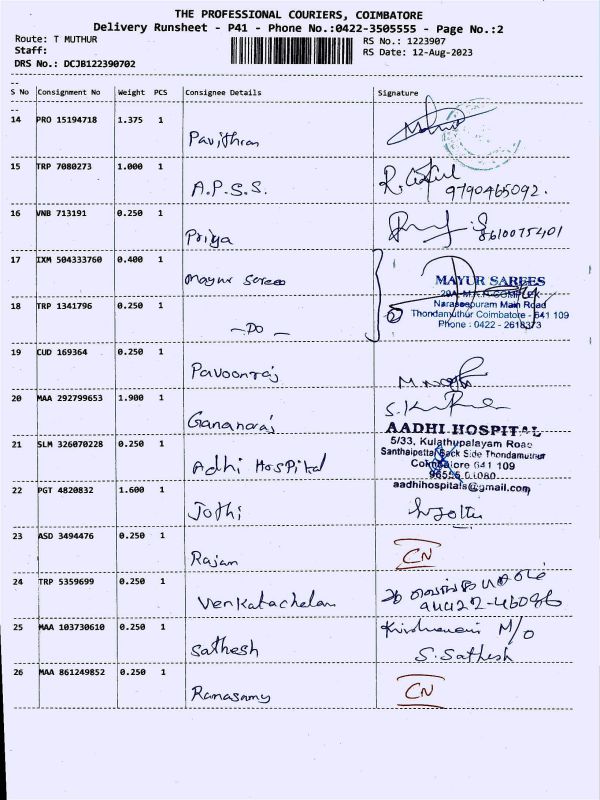 THE PROFESSIONAL COURIERS, COIMBATORE
Delivery Runsheet - P41 - Phone No.:0422-3505555 - Page No.:2
Route: T MUTHUR
RS No.: 1223907
Staff:
RS Date: 12-Aug-2023
DRS No.: DCJB122390702
S No Consignment No Weight PCS Consignee Details Signature
14 PRO 15194718 1.375 1 Pavithran
15 TRP 7080273 1.000 1 A.P.S.S. 9790465092.
16 VNB 713191 0.250 1 Priya 8610075401
17 IXM 504333760 0.400 1 Mayur Sarees
MAYUR SAREES
Narasepuram Main Road
18 TRP 1341796 0.250 1 -DO-
Thondamuthur Coimbatore - 641 109
Phone : 0422 - 2618373
19 CUD 169364 0.250 1 Pavoonraj
20 MAA 292799653 1.900 1 Gananaraj
AADHI HOSPITAL
5/33, Kulathupalayam Road
21 SLM 326070228 0.250 1 Adhi Hospital
Santhaipettai Back Side Thondamuthur
Coimbatore 641 109
aadhihospitals@gmail.com
22 PGT 4820832 1.600 1 Jothi
23 ASD 3494476 0.250 1 Rajan CN
24 TRP 5359699 0.250 1 Venkatachelam
25 MAA 103730610 0.250 1 Sathesh M/O
S. Sathesh
26 MAA 861249852 0.250 1 Ramasamy CN